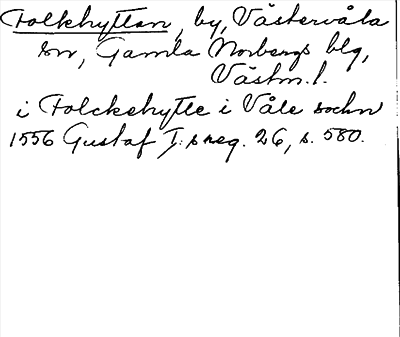 Folkhyttan, by, Västervåla
sn, Gamla Norbergs blg,
Västm. l.
i Folckehytte i Våle sochn
1556 Gustaf I:s reg. 26, s. 580.